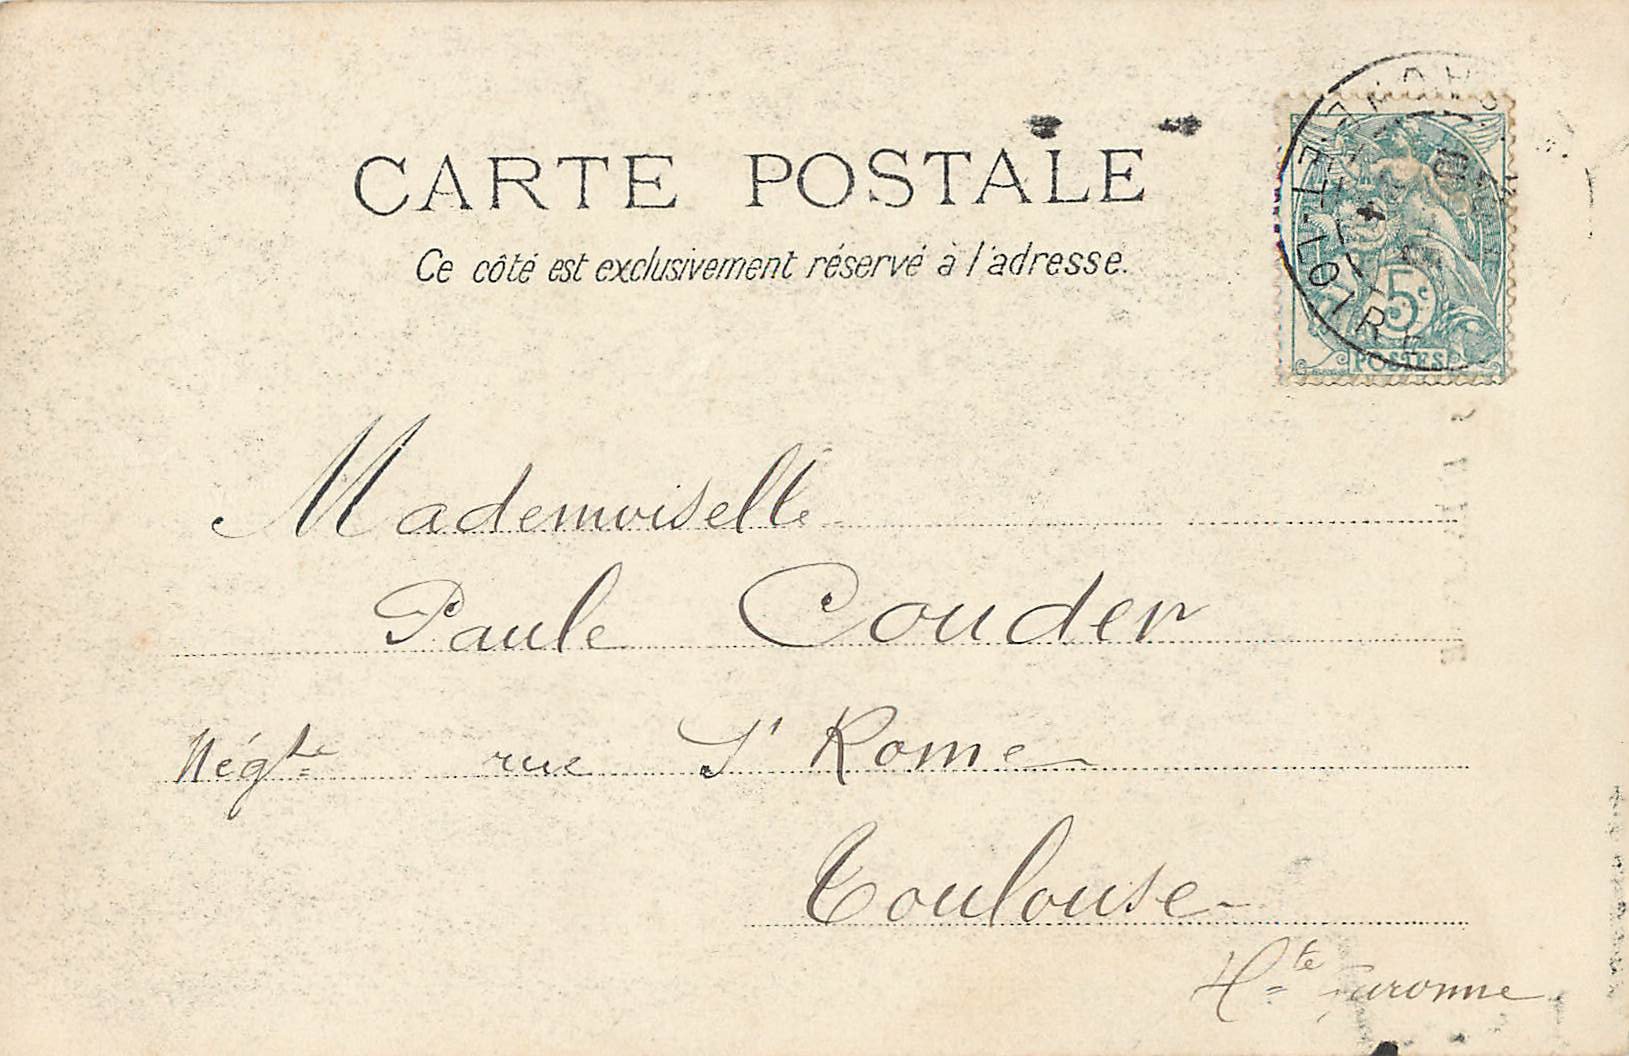 CARTE POSTALE
Ce côté est exclusivement réservé à l'adresse.
5c
POSTES
ET-LOIRE
Mademoiselle
Paule Couder
Négte rue St Rome
Toulouse
Hte Garonne